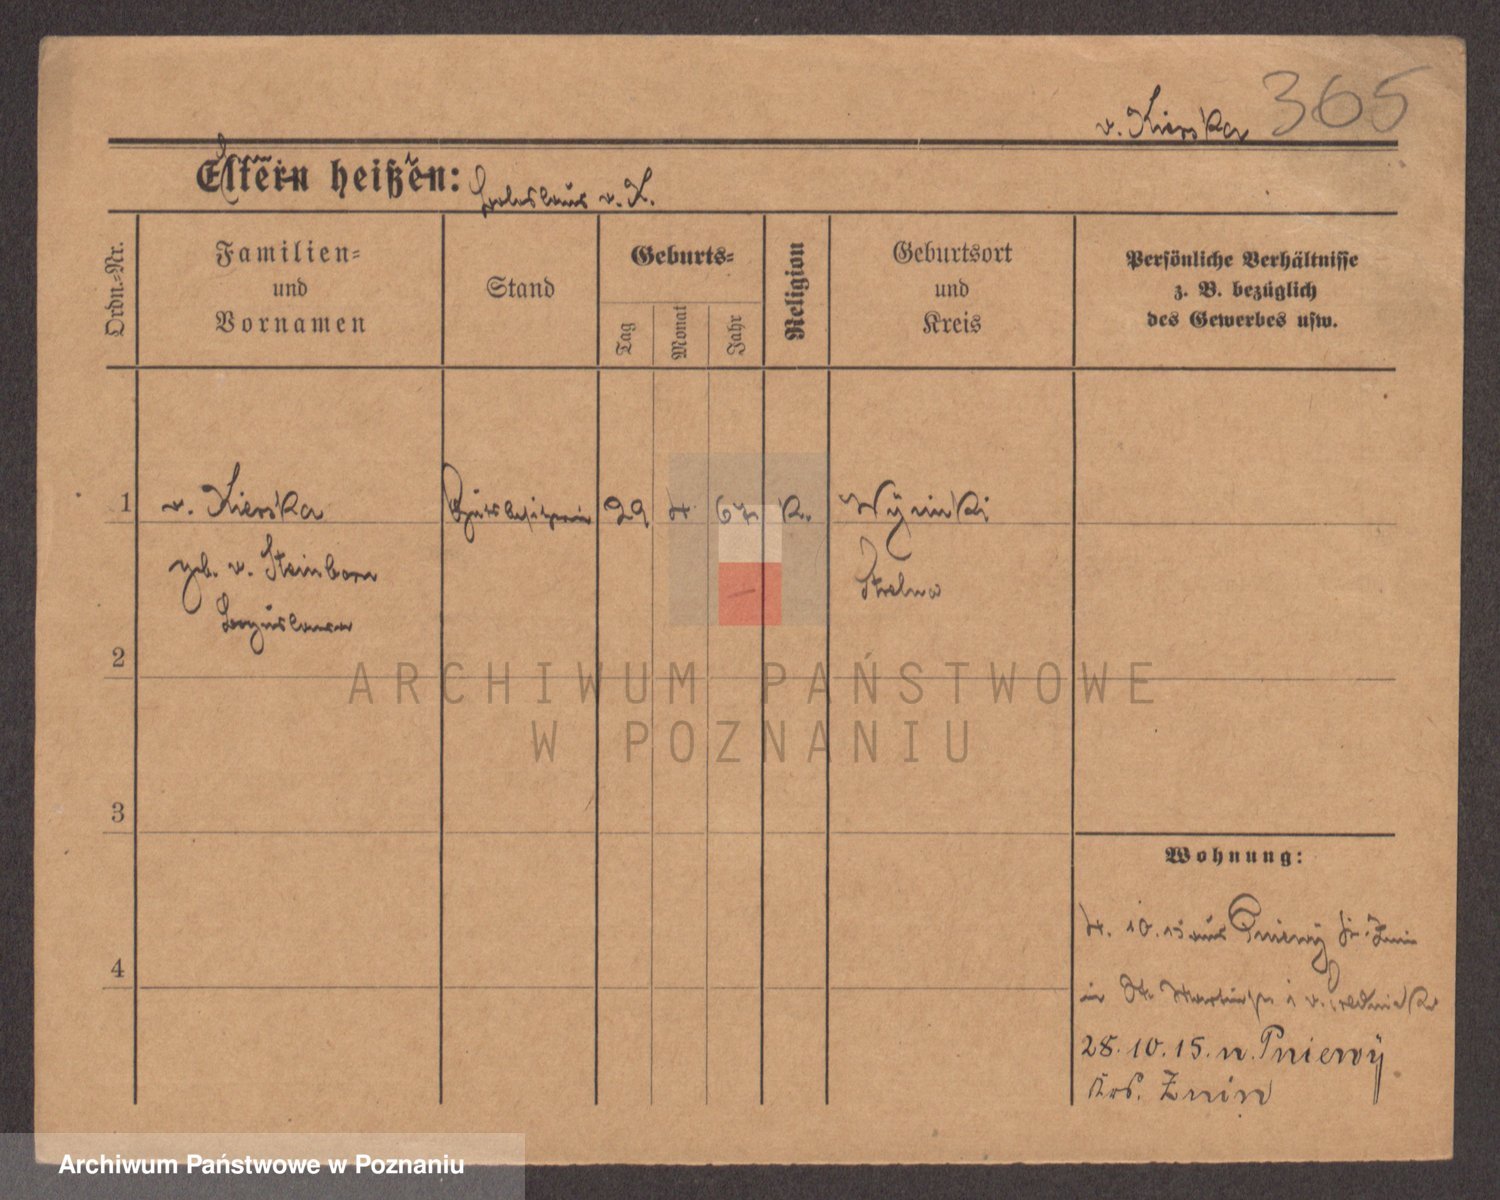 v. Kierska 365
Eltern heißen: Boleslaus v. K.
Ordn.=Nr.
Familien=
und
Vornamen
Stand
Geburts=
Tag
Monat
Jahr
Religion
Geburtsort
und
Kreis
Persönliche Verhältnisse
z. B. bezüglich
des Gewerbes usw.
1
v. Kierska
Gutsbesitzerin
29
4
67
K.
geb. v. Steinborn
Boguslawa
Strelno
2
3
4
Wohnung:
4. 10. 15 aus Pniewy Kr. Znin
in St. Martinstr.
28. 10. 15. n. Pniewy
Krs. Znin
ARCHIWUM PAŃSTWOWE
W POZNANIU
Archiwum Państwowe w Poznaniu